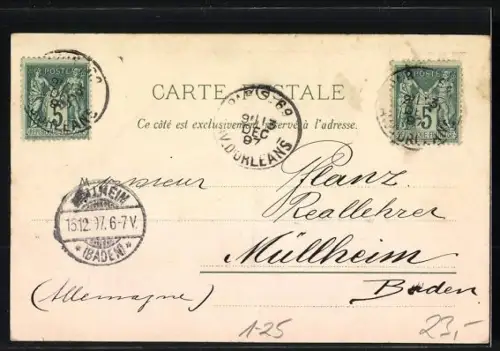 POSTE
5
POSTE
5
CARTE POSTALE
Ce côté est exclusivement réservé à l'adresse.
PARIS-69
DEC
97
AV. D'ORLEANS
Monsieur Pflanz
Reallehrer
Müllheim
Baden
(Allemagne)
MÜLLHEIM
15.12.97. 6-7V.
* (BADEN) *
1-25
23,-